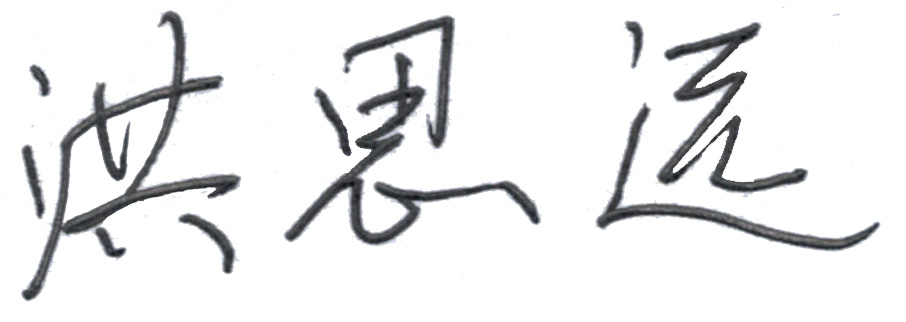 洪思远